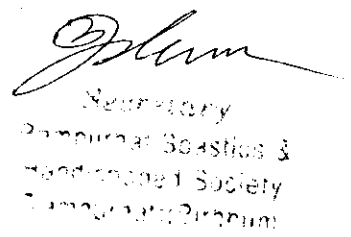 Secretary
Rampurhat Spastics &
Handicapped Society
Rampurhat, Birbhum